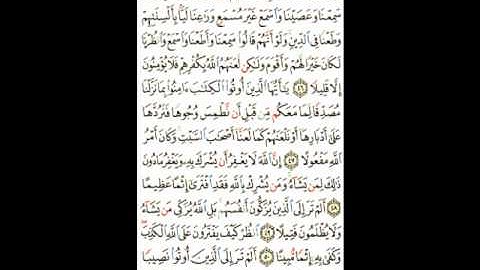 سَمِعْنَا وَعَصَيْنَا وَٱسْمَعْ غَيْرَ مُسْمَعٍ وَرَٰعِنَا لَيًّۢا بِأَلْسِنَتِهِمْ
وَطَعْنًا فِى ٱلدِّينِ ۚ وَلَوْ أَنَّهُمْ قَالُوا۟ سَمِعْنَا وَأَطَعْنَا وَٱسْمَعْ وَٱنظُرْنَا
لَكَانَ خَيْرًا لَّهُمْ وَأَقْوَمَ وَلَٰكِن لَّعَنَهُمُ ٱللَّهُ بِكُفْرِهِمْ فَلَا يُؤْمِنُونَ
إِلَّا قَلِيلًا ٤٦ يَٰٓأَيُّهَا ٱلَّذِينَ أُوتُوا۟ ٱلْكِتَٰبَ ءَامِنُوا۟ بِمَا نَزَّلْنَا
مُصَدِّقًا لِّمَا مَعَكُم مِّن قَبْلِ أَن نَّطْمِسَ وُجُوهًا فَنَرُدَّهَا
عَلَىٰٓ أَدْبَارِهَآ أَوْ نَلْعَنَهُمْ كَمَا لَعَنَّآ أَصْحَٰبَ ٱلسَّبْتِ ۚ وَكَانَ أَمْرُ
ٱللَّهِ مَفْعُولًا ٤٧ إِنَّ ٱللَّهَ لَا يَغْفِرُ أَن يُشْرَكَ بِهِۦ وَيَغْفِرُ مَا دُونَ
ذَٰلِكَ لِمَن يَشَآءُ ۚ وَمَن يُشْرِكْ بِٱللَّهِ فَقَدِ ٱفْتَرَىٰٓ إِثْمًا عَظِيمًا
٤٨ أَلَمْ تَرَ إِلَى ٱلَّذِينَ يُزَكُّونَ أَنفُسَهُم ۚ بَلِ ٱللَّهُ يُزَكِّى مَن يَشَآءُ
وَلَا يُظْلَمُونَ فَتِيلًا ٤٩ ٱنظُرْ كَيْفَ يَفْتَرُونَ عَلَى ٱللَّهِ ٱلْكَذِبَ ۖ
وَكَفَىٰ بِهِۦٓ إِثْمًا مُّبِينًا ٥٠ أَلَمْ تَرَ إِلَى ٱلَّذِينَ أُوتُوا۟ نَصِيبًا